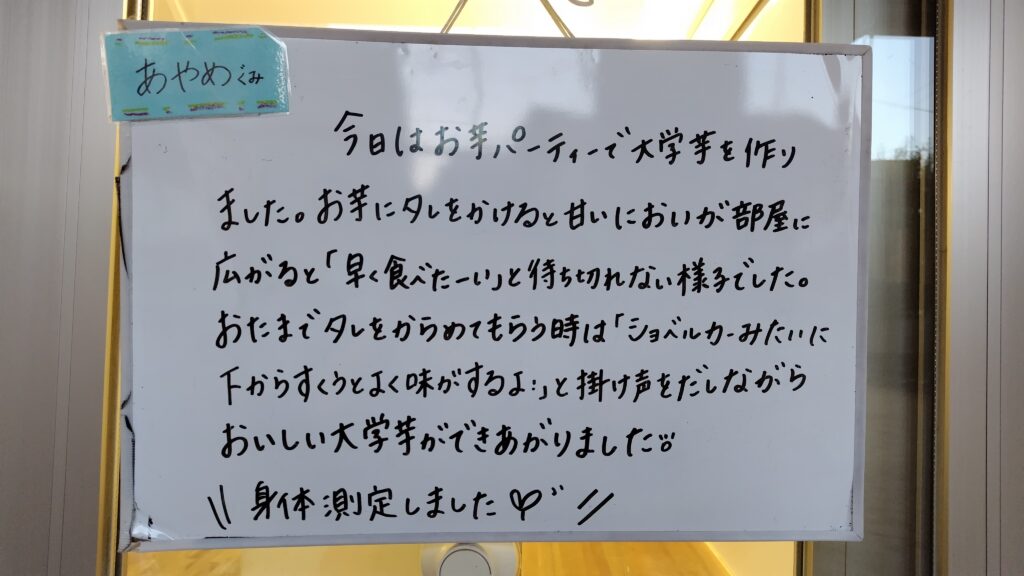 あやめぐみ
今日はお芋パーティーで大学芋を作り
ました。お芋にタレをかけると甘いにおいが部屋に
広がると「早く食べたーい」と待ち切れない様子でした。
おたまでタレをからめてもらう時は「ショベルカーみたいに
下からすくうとよく味がするよ!」と掛け声をだしながら
おいしい大学芋ができあがりました。
\\ 身体測定しました♡ //